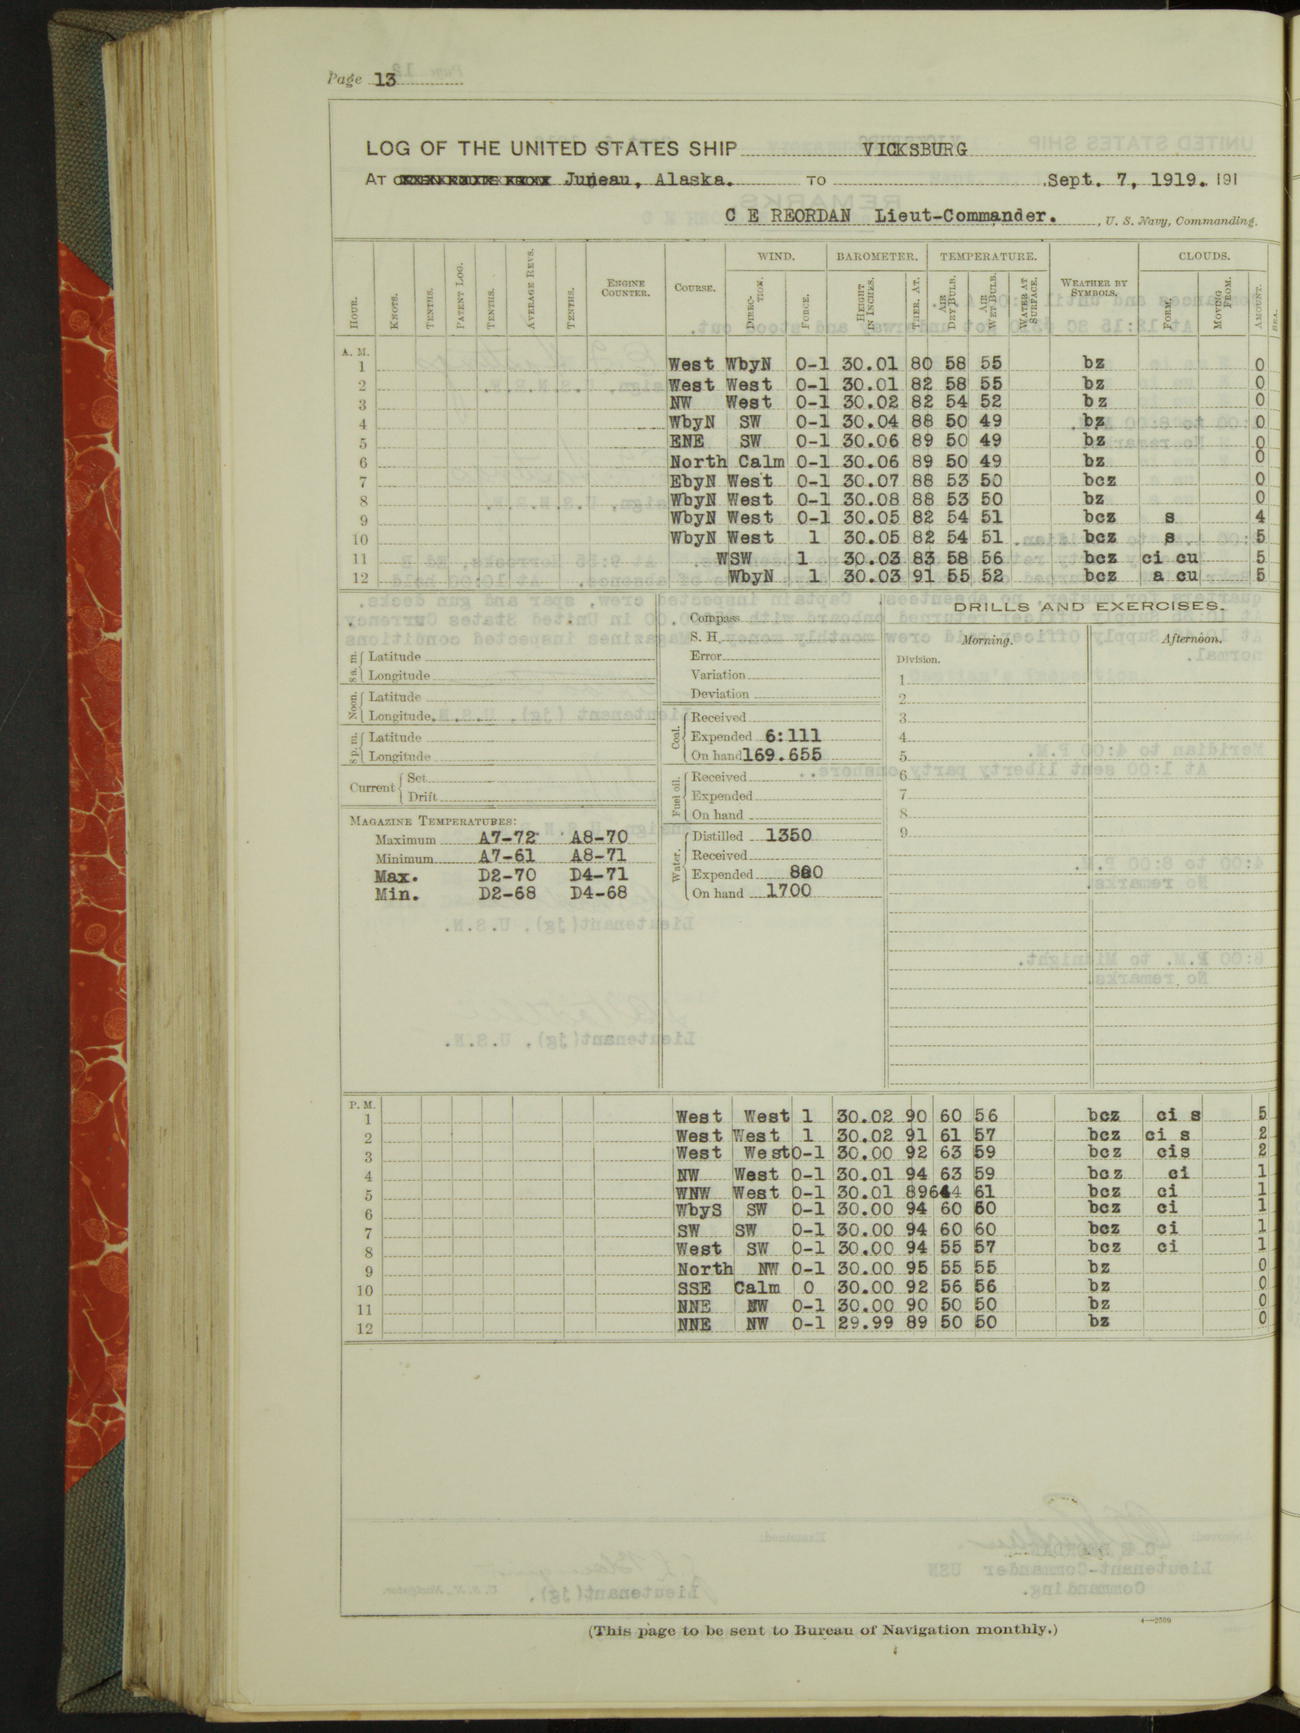 Page 13
LOG OF THE UNITED STATES SHIP VICKSBURG
AT Juneau, Alaska. TO Sept. 7, 1919. 191
C E REORDAN Lieut-Commander. , U. S. Navy, Commanding.
HOUR. KNOTS. TENTHS. PATENT LOG. TENTHS. AVERAGE REVS. TENTHS. ENGINE COUNTER. COURSE. WIND. DIRECTION. FORCE. BAROMETER. HEIGHT IN INCHES. THER. AT. TEMPERATURE. AIR DRY BULB. AIR WET BULB. WATER AT SURFACE. WEATHER BY SYMBOLS. CLOUDS. FORM. MOVING FROM. AMOUNT.
A. M.
1 West WbyN 0-1 30.01 80 58 55 bz 0
2 West West 0-1 30.01 82 58 55 bz 0
3 NW West 0-1 30.02 82 54 52 bz 0
4 WbyN SW 0-1 30.04 88 50 49 bz 0
5 ENE SW 0-1 30.06 89 50 49 bz 0
6 North Calm 0-1 30.06 89 50 49 bz 0
7 EbyN West 0-1 30.07 88 53 50 bcz 0
8 WbyN West 0-1 30.08 88 53 50 bz 0
9 WbyN West 0-1 30.05 82 54 51 bcz s 4
10 WbyN West 1 30.05 82 54 51 bcz s 5
11 WSW 1 30.03 83 58 56 bcz ci cu 5
12 WbyN 1 30.03 91 55 52 bcz a cu 5
8 a. m. Latitude
Longitude
Noon. Latitude
Longitude
8 p. m. Latitude
Longitude
Current Set
Drift
MAGAZINE TEMPERATURES:
Maximum A7-72 A8-70
Minimum A7-61 A8-71
Max. D2-70 D4-71
Min. D2-68 D4-68
Compass
S. H.
Error
Variation
Deviation
Coal. Received
Expended 6:111
On hand 169.655
Fuel oil. Received
Expended
On hand
Water. Distilled 1350
Received
Expended 880
On hand 1700
DRILLS AND EXERCISES.
Morning. Afternoon.
Division.
1
2
3
4
5
6
7
8
9
P. M.
1 West West 1 30.02 90 60 56 bcz ci s 5
2 West West 1 30.02 91 61 57 bcz ci s 2
3 West West 0-1 30.00 92 63 59 bcz cis 2
4 NW West 0-1 30.01 94 63 59 bcz ci 1
5 WNW West 0-1 30.01 89 644 61 bcz ci 1
6 WbyS SW 0-1 30.00 94 60 60 bcz ci 1
7 SW SW 0-1 30.00 94 60 60 bcz ci 1
8 West SW 0-1 30.00 94 55 57 bcz ci 1
9 North NW 0-1 30.00 95 55 55 bz 0
10 SSE Calm 0 30.00 92 56 56 bz 0
11 NNE NW 0-1 30.00 90 50 50 bz 0
12 NNE NW 0-1 29.99 89 50 50 bz 0
(This page to be sent to Bureau of Navigation monthly.)
4—2509